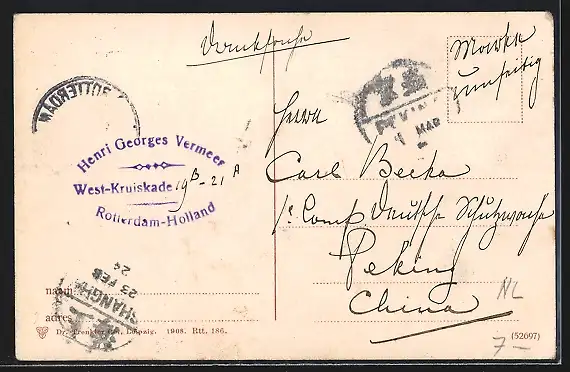 Drucksache
Marke
umseitig
ROTTERDAM
PEKING
1 MAR
Herrn
Henri Georges Vermeer
West-Kruiskade 19B-21A
Rotterdam-Holland
Carl Becka
1/. Comp. Deutsche Schutzwache
Peking
China
SHANGHAI
23 FEB
24
naam
adres
NL
7-
Dr. Trenkler Co., Leipzig. 1908. Rtt. 186.
(52697)